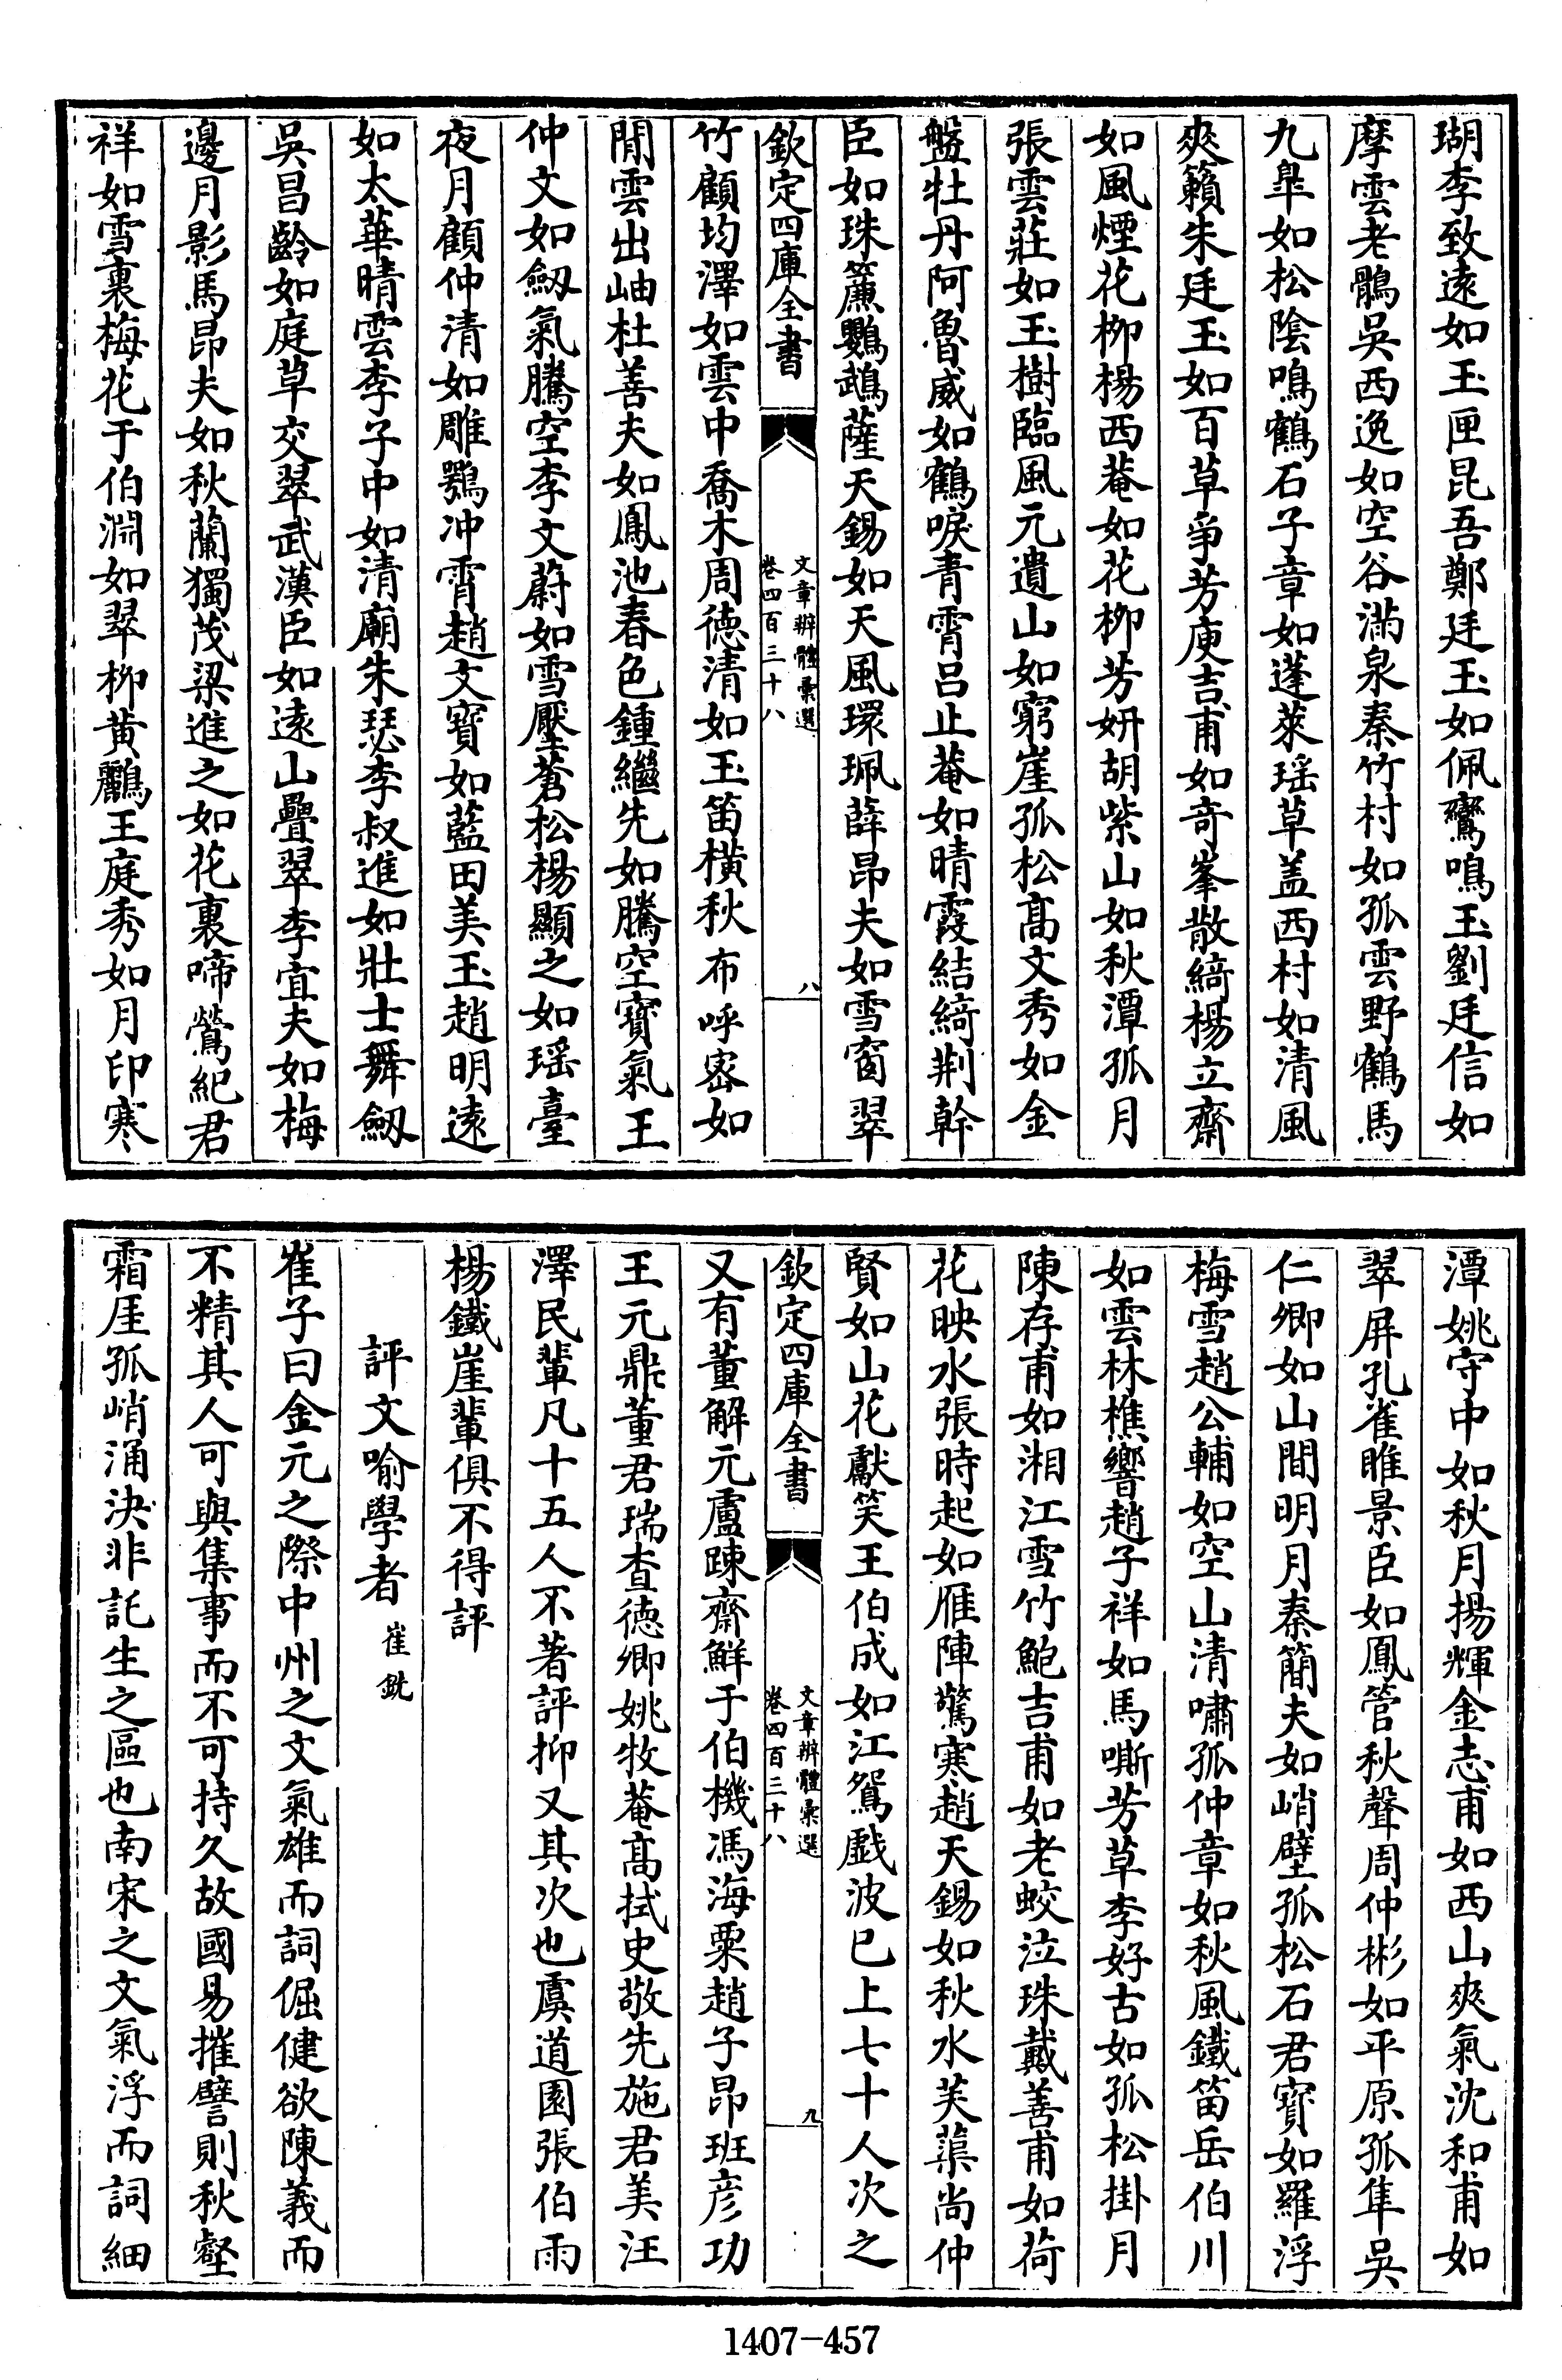 瑚李致遠如玉匣昆吾鄭廷玉如佩鸞鳴玉劉廷信如
摩雲老鶻吳西逸如空谷滿泉秦竹村如孤雲野鶴馬
九臯如松陰鳴鶴石子章如蓬萊瑶草盖西村如清風
爽籟朱廷玉如百草爭芳庾吉甫如奇峯散綺楊立齋
如風煙花柳楊西菴如花柳芳妍胡紫山如秋潭孤月
張雲莊如玉樹臨風元遺山如窮崖孤松高文秀如金
盤牡丹阿魯威如鶴唳青霄呂止菴如晴霞結綺荆幹
臣如珠簾鸚鵡薩天錫如天風環珮薛昂夫如雪窗翠
欽定四庫全書
文章辨體彙選
卷四百三十八
八
竹顧均澤如雲中喬木周德清如玉笛橫秋布呼密如
閒雲出岫杜善夫如鳳池春色鍾繼先如騰空寶氣王
仲文如劔氣騰空李文蔚如雪壓蒼松楊顯之如瑶臺
夜月顧仲清如雕鶚冲霄趙文寶如藍田美玉趙明遠
如太華晴雲李子中如清廟朱瑟李叔進如壯士舞劔
吳昌齡如庭草交翠武漢臣如遠山疊翠李宜夫如梅
邊月影馬昂夫如秋蘭獨茂梁進之如花裏啼鶯紀君
祥如雪裏梅花于伯淵如翠柳黄鸝王庭秀如月印寒
潭姚守中如秋月揚輝金志甫如西山爽氣沈和甫如
翠屏孔雀睢景臣如鳳管秋聲周仲彬如平原孤隼吳
仁卿如山間明月秦簡夫如峭壁孤松石君寶如羅浮
梅雪趙公輔如空山清嘯孤仲章如秋風鐵笛岳伯川
如雲林樵響趙子祥如馬嘶芳草李好古如孤松掛月
陳存甫如湘江雪竹鮑吉甫如老蛟泣珠戴善甫如荷
花映水張時起如雁陣驚寒趙天錫如秋水芙蕖尚仲
賢如山花獻笑王伯成如江鴛戯波已上七十人次之
欽定四庫全書
文章辨體彙選
卷四百三十八
九
又有董解元盧踈齋鮮于伯機馮海粟趙子昂班彦功
王元鼎董君瑞查德卿姚牧菴高拭史敬先施君美汪
澤民輩凡十五人不著評抑又其次也虞道園張伯雨
楊鐵崖輩俱不得評
評文喻學者 崔銑
崔子曰金元之際中州之文氣雄而詞倔健欲陳義而
不精其人可與集事而不可持久故國易摧譬則秋壑
霜厓孤峭涌決非託生之區也南宋之文氣浮而詞細
1407-457